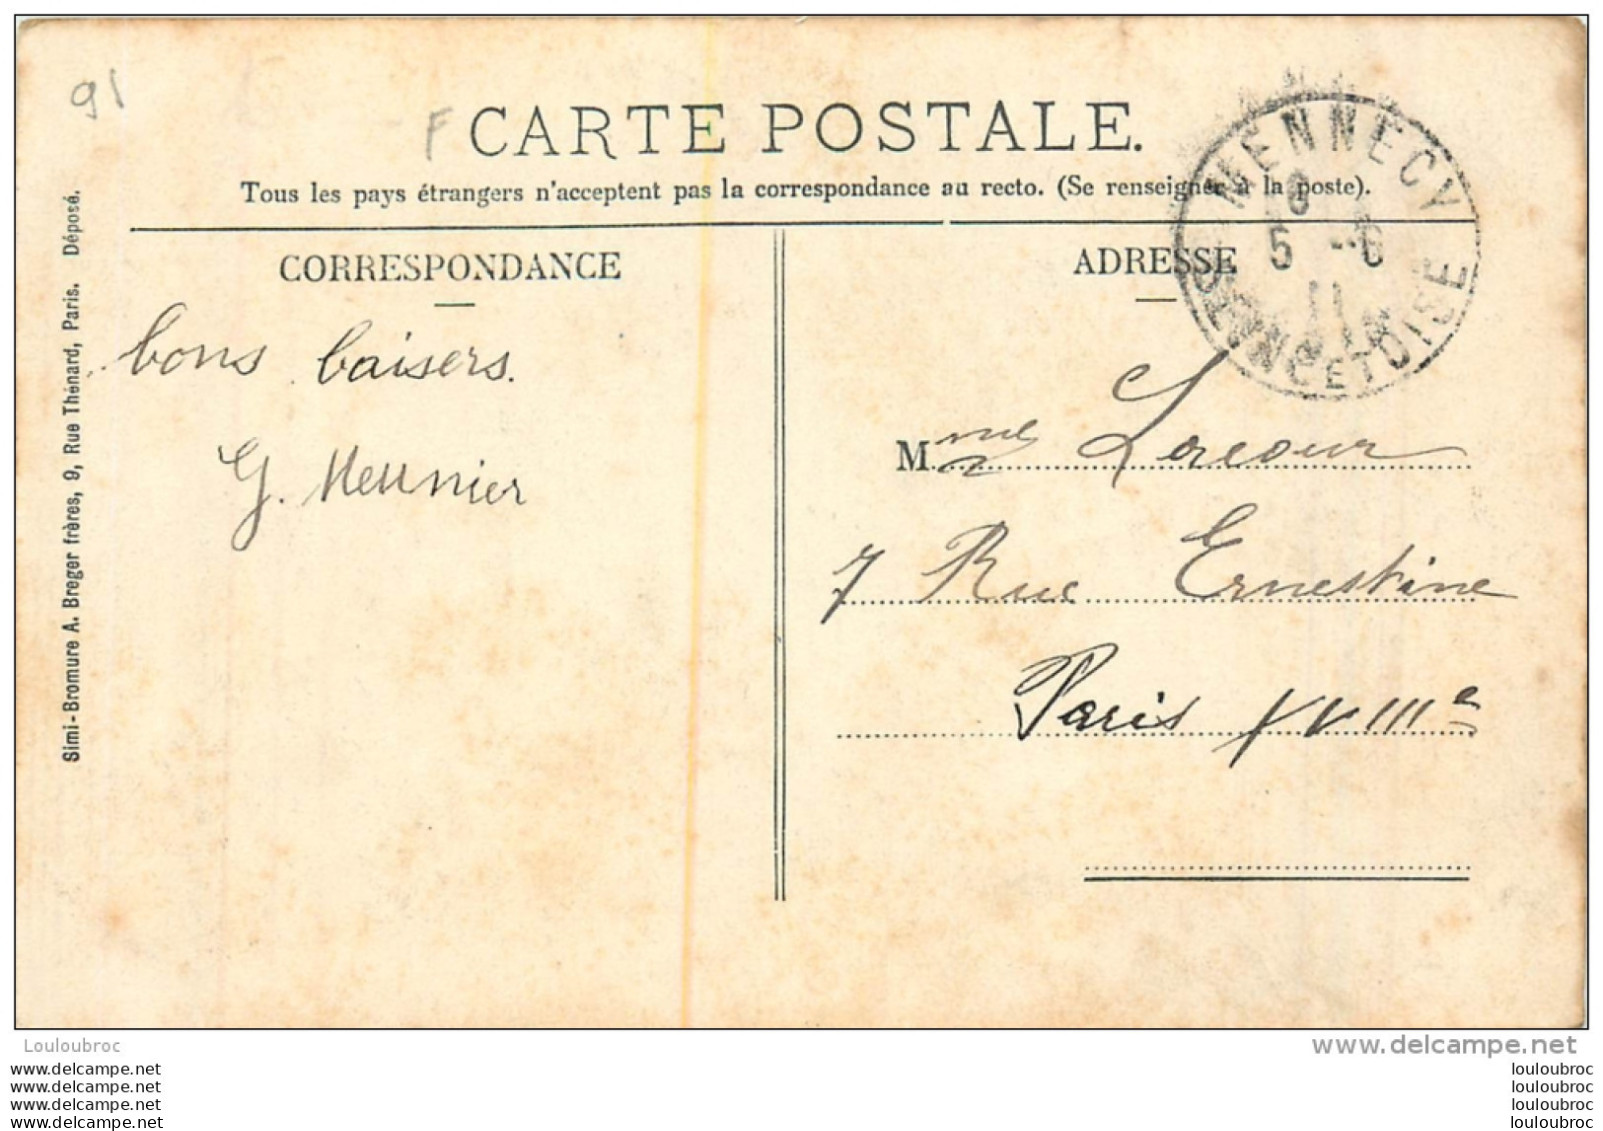 91
F CARTE POSTALE.
Tous les pays étrangers n'acceptent pas la correspondance au recto. (Se renseigner à la poste).
MENNECY
5 -6
11
SEINE ET OISE
CORRESPONDANCE
bons baisers.
G. Meunier
ADRESSE
Mme Lacour
7 Rue Ernestine
Paris XVIIIe
Simi-Bromure A. Breger frères, 9, Rue Thénard, Paris. Déposé.
Louloubroc
www.delcampe.net
www.delcampe.net
www.delcampe.net
www.delcampe.net
www.delcampe.net
louloubroc
louloubroc
louloubroc
louloubroc